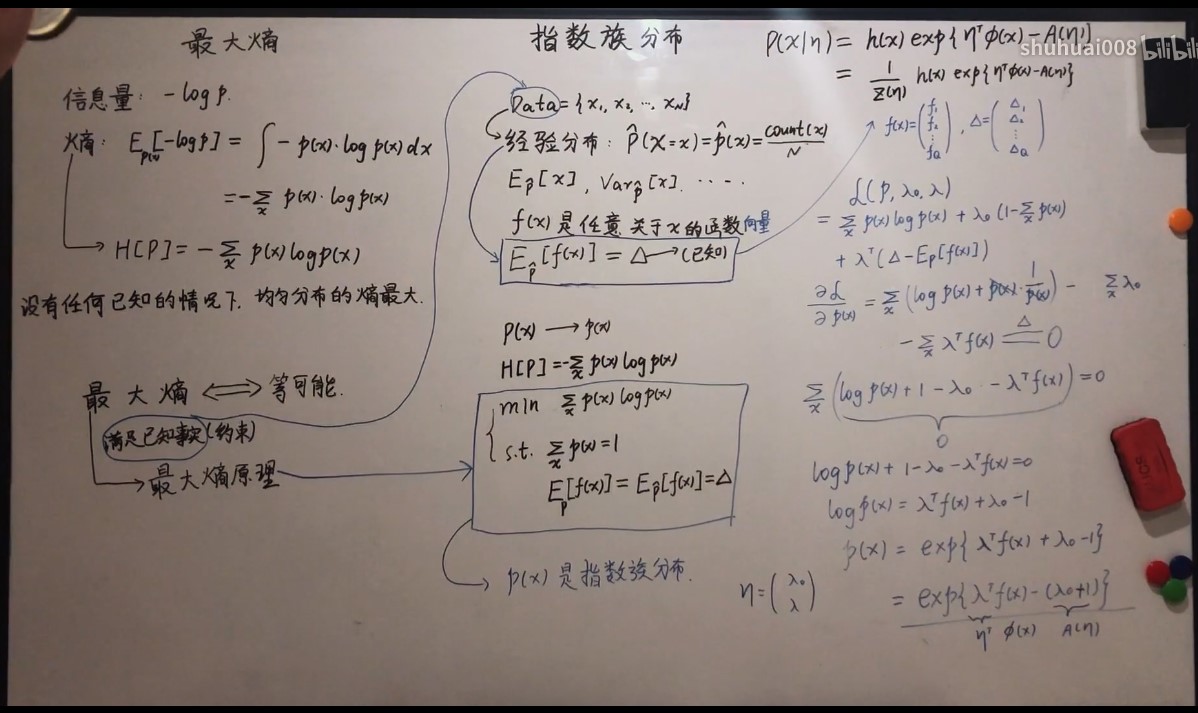 最大熵
信息量: -log p.
熵: E_{p(x)}[-log p] = ∫ - p(x)·log p(x) dx
= -∑_x p(x)·log p(x)
H[P] = -∑_x p(x) log p(x)
没有任何已知的情况下, 均匀分布的熵最大.
最大熵 ⟺ 等可能.
满足已知事实(约束)
最大熵原理
指数族分布
Data = {x₁, x₂, ..., x_N}
经验分布: p̂(X=x) = p̂(x) = count(x)/N
E_p̂[x], Var_p̂[x]. ....
f(x) 是任意 关于 x 的函数向量
E_p̂[f(x)] = Δ → (已知)
P(x) → p(x)
H[P] = -∑_x p(x) log p(x)
min ∑_x p(x) log p(x)
s.t. ∑_x p(x) = 1
E_p[f(x)] = E_p̂[f(x)] = Δ
p(x) 是指数族分布.
η = (λ₀ λ)
P(x|η) = h(x) exp{η^T φ(x) - A(η)}
shuhuai008 bilibili
= 1/z(η) h(x) exp{η^T φ(x) - A(η)}
f(x) = (f₁ f₂ ⋮ f_Q), Δ = (Δ₁ Δ₂ ⋮ Δ_Q)
L(p, λ₀, λ)
= ∑_x p(x) log p(x) + λ₀(1-∑_x p(x))
+ λ^T(Δ - E_p[f(x)])
∂L/∂p(x) = ∑_x (log p(x) + p(x)·1/p(x)) - ∑_x λ₀
- ∑_x λ^T f(x) ≜ 0
∑_x (log p(x) + 1 - λ₀ - λ^T f(x)) = 0
0
log p(x) + 1 - λ₀ - λ^T f(x) = 0
log p(x) = λ^T f(x) + λ₀ - 1
p(x) = exp{λ^T f(x) + λ₀ - 1}
= exp{λ^T f(x) - (λ₀+1)}
η^T φ(x) A(η)